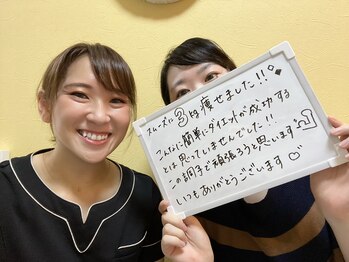 スムーズに 8キロ 痩せました!!
こんなに簡単にダイエットが成功する
とは思っていませんでした!!
この調子で頑張ろうと思います
いつもありがとうございます♡